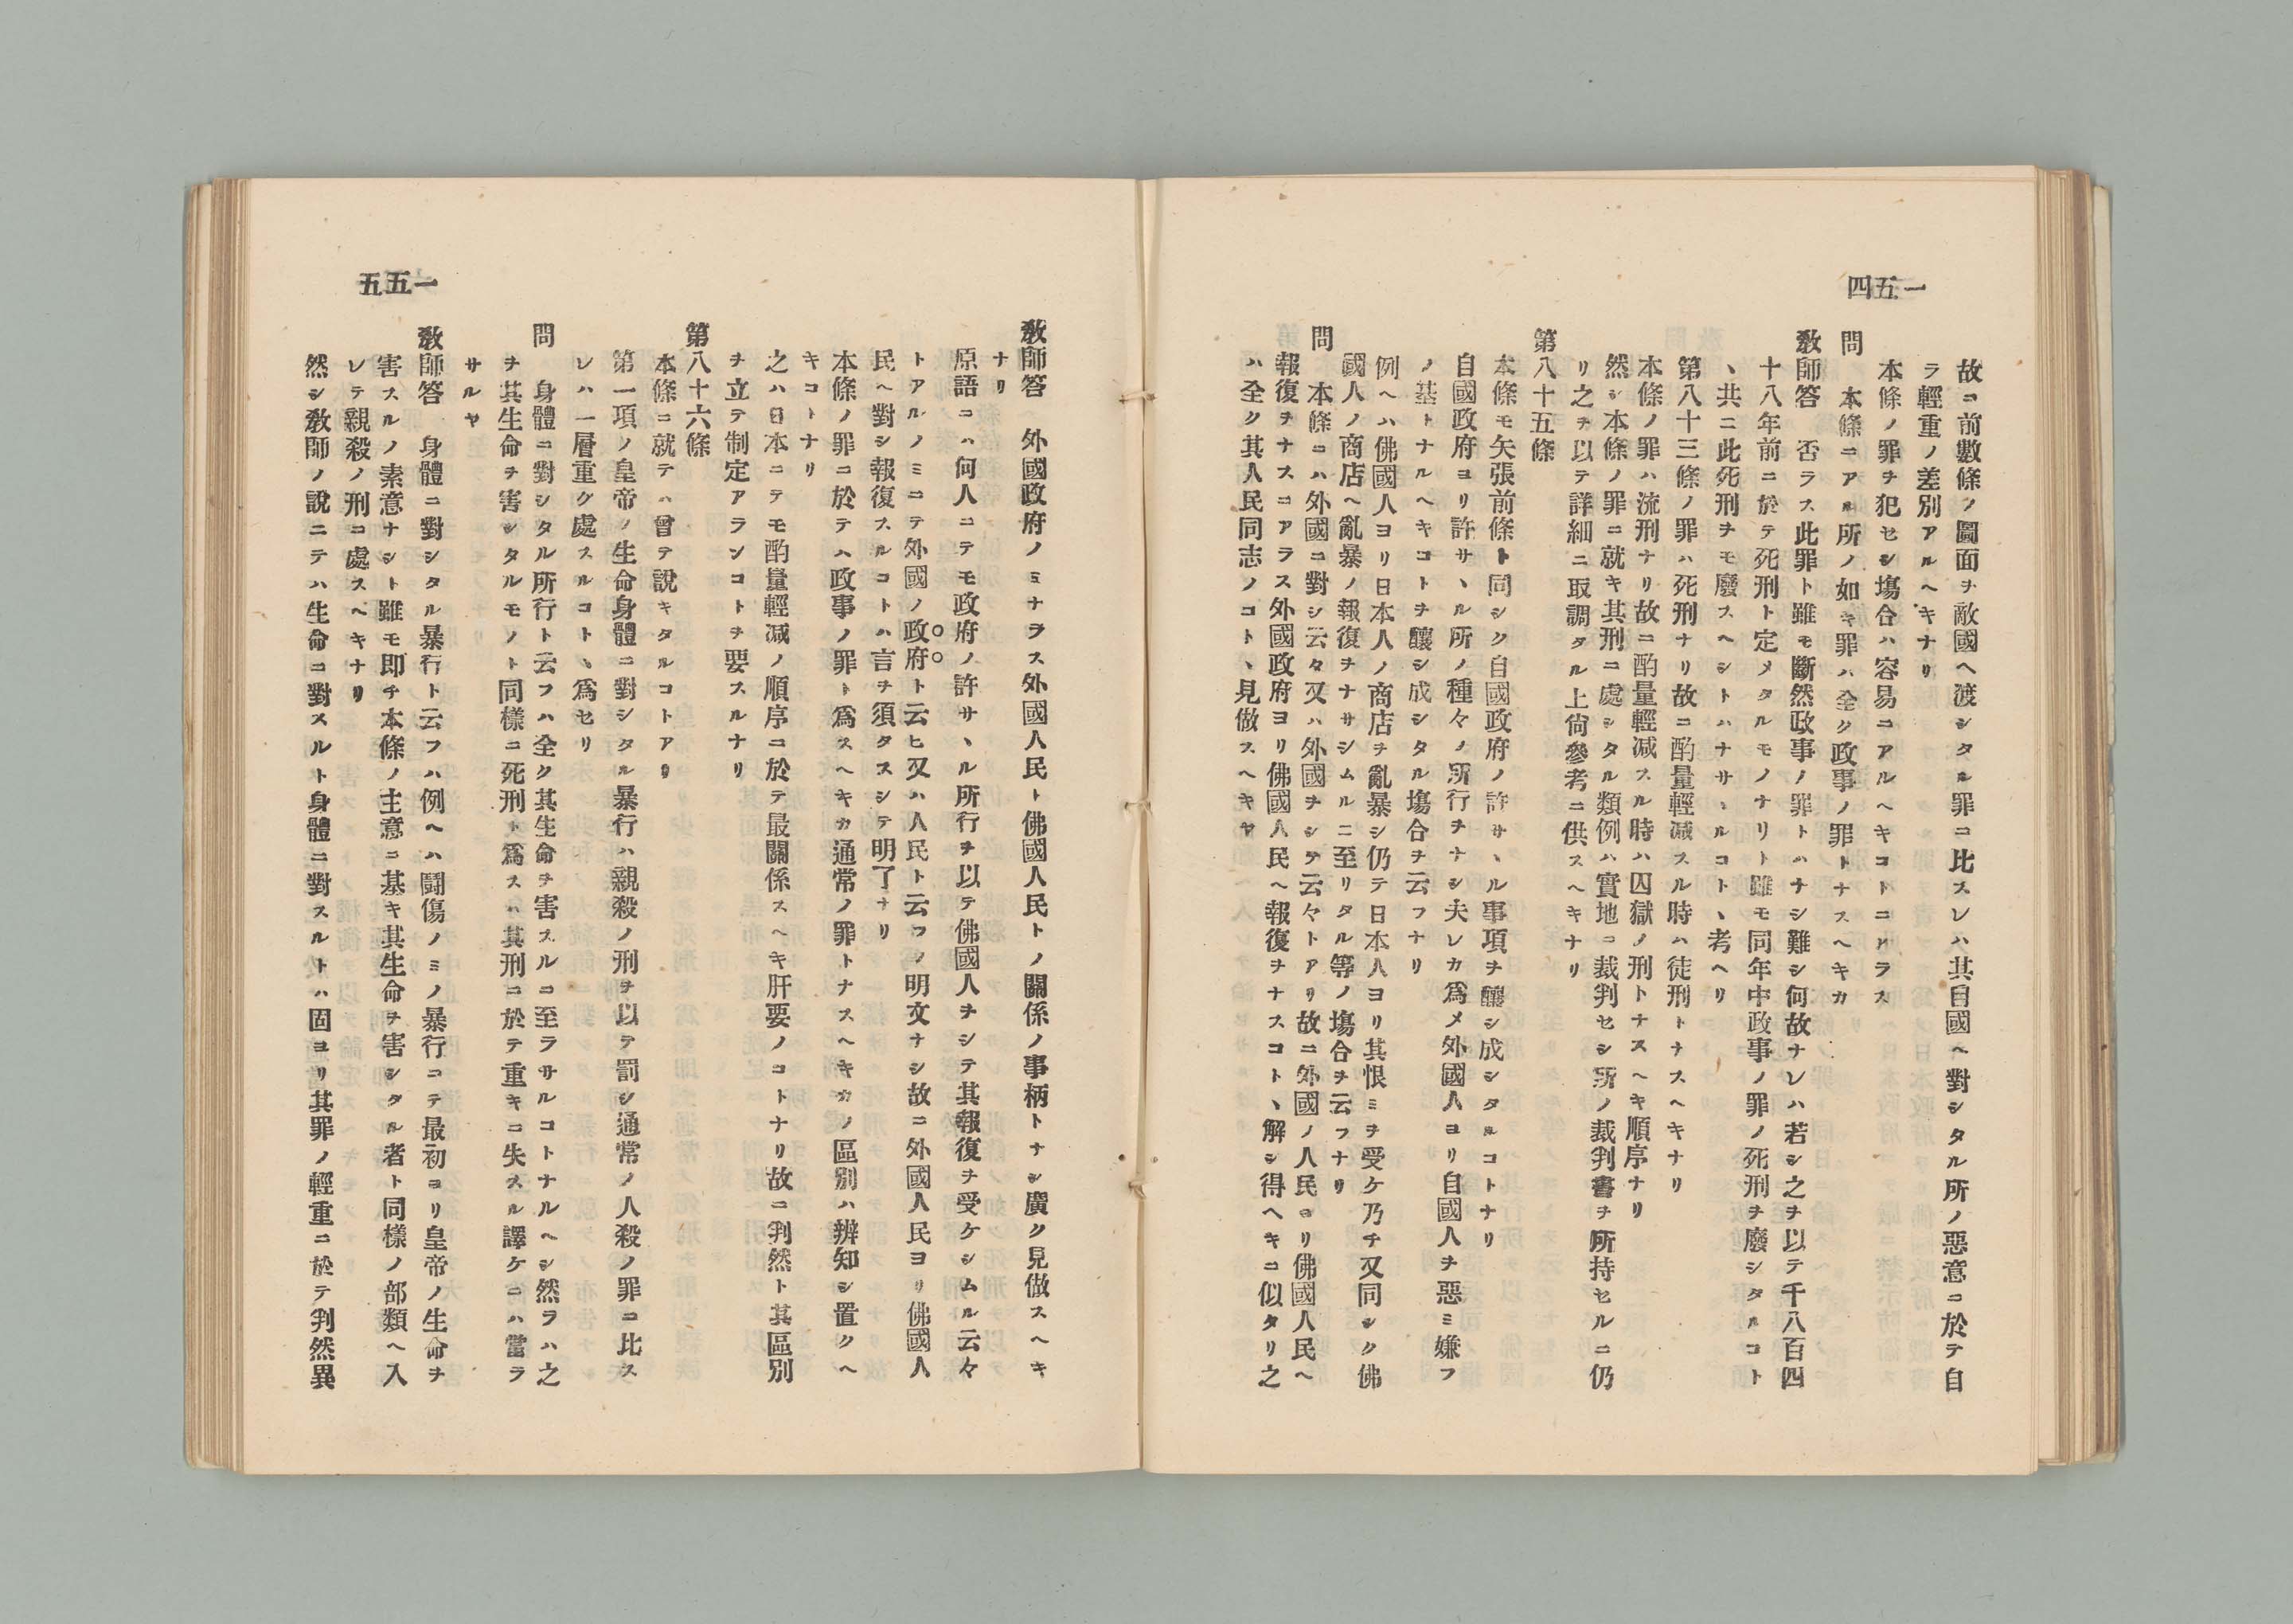 一五四
故ニ前數條ノ圖面ヲ敵國ヘ渡シタル罪ニ比スレハ其自國ヘ對シタル所ノ惡意ニ於テ自
ラ輕重ノ差別アルヘキナリ
本條ノ罪ヲ犯セシ塲合ハ容易ニアルヘキコトニアラス
問　本條ニアル所ノ如キ罪ハ全ク政事ノ罪トナスヘキカ
敎師答　否ラス此罪ト雖モ斷然政事ノ罪トハナシ難シ何故ナレハ若シ之ヲ以テ千八百四
十八年前ニ於テ死刑ト定メタルモノナリト雖モ同年中政事ノ罪ノ死刑ヲ廢シタルコト
ヽ共ニ此死刑ヲモ廢スヘシトハナサヽルコトヽ考ヘリ
第八十三條ノ罪ハ死刑ナリ故ニ酌量輕减スル時ハ徒刑トナスヘキナリ
本條ノ罪ハ流刑ナリ故ニ酌量輕减スル時ハ囚獄ノ刑トナスヘキ順序ナリ
然シ本條ノ罪ニ就キ其刑ニ處シタル類例ハ實地ニ裁判セシ所ノ裁判書ヲ所持セルニ仍
リ之ヲ以テ詳細ニ取調タル上尙參考ニ供スヘキナリ
第八十五條
本條モ矢張前條ト同シク自國政府ノ許サヽル事項ヲ釀シ成シタルコトナリ
自國政府ヨリ許サヽル所ノ種々ノ所行ヲナシ夫レカ爲メ外國人ヨリ自國人ヲ惡ミ嫌フ
ノ基トナルヘキコトヲ釀シ成シタル塲合ヲ云フナリ
例ヘハ佛國人ヨリ日本人ノ商店ヲ亂暴シ仍テ日本人ヨリ其恨ミヲ受ケ乃チ又同シク佛
國人ノ商店ヘ亂暴ノ報復ヲナサシムルニ至リタル等ノ塲合ヲ云フナリ
問　本條ニハ外國ニ對シ云々又ハ外國ヲシテ云々トアリ故ニ外國ノ人民ヨリ佛國人民ヘ
報復ヲナスニアラス外國政府ヨリ佛國人民ヘ報復ヲナスコトヽ解シ得ヘキニ似タリ之
ハ全ク其人民同志ノコトヽ見做スヘキヤ
一五五
敎師答　外國政府ノミナラス外國人民ト佛國人民トノ關係ノ事柄トナシ廣ク見做スヘキ
ナリ
原語ニハ何人ニテモ政府ノ許サヽル所行ヲ以テ佛國人ヲシテ其報復ヲ受ケシムル云々
トアルノミニテ外國ノ政府ト云ヒ又ハ人民ト云フノ明文ナシ故ニ外國人民ヨリ佛國人
民ヘ對シ報復スルコトハ言ヲ須タスシテ明了ナリ
本條ノ罪ニ於テハ政事ノ罪ト爲スヘキカ通常ノ罪トナスヘキカノ區別ハ辨知シ置クヘ
キコトナリ
之ハ日本ニテモ酌量輕减ノ順序ニ於テ最關係スヘキ肝要ノコトナリ故ニ判然ト其區別
ヲ立テ制定アランコトヲ要スルナリ
第八十六條
本條ニ就テハ曾テ說キタルコトアリ
第一項ノ皇帝ノ生命身體ニ對シタル暴行ハ親殺ノ刑ヲ以テ罰シ通常ノ人殺ノ罪ニ比ス
レハ一層重ク處スルコトヽ爲セリ
問　身體ニ對シタル所行ト云フハ全ク其生命ヲ害スルニ至ラサルコトナルヘシ然ラハ之
ヲ其生命ヲ害シタルモノト同樣ニ死刑ト爲スハ其刑ニ於テ重キニ失スル譯ケニハ當ラ
サルヤ
敎師答　身體ニ對シタル暴行ト云フハ例ヘハ鬪傷ノミノ暴行ニテ最初ヨリ皇帝ノ生命ヲ
害スルノ素意ナシト雖モ即チ本條ノ主意ニ基キ其生命ヲ害シタル者ト同樣ノ部類ヘ入
レテ親殺ノ刑ニ處スヘキナリ
然シ敎師ノ說ニテハ生命ニ對スルト身體ニ對スルトハ固ヨリ其罪ノ輕重ニ於テ判然異